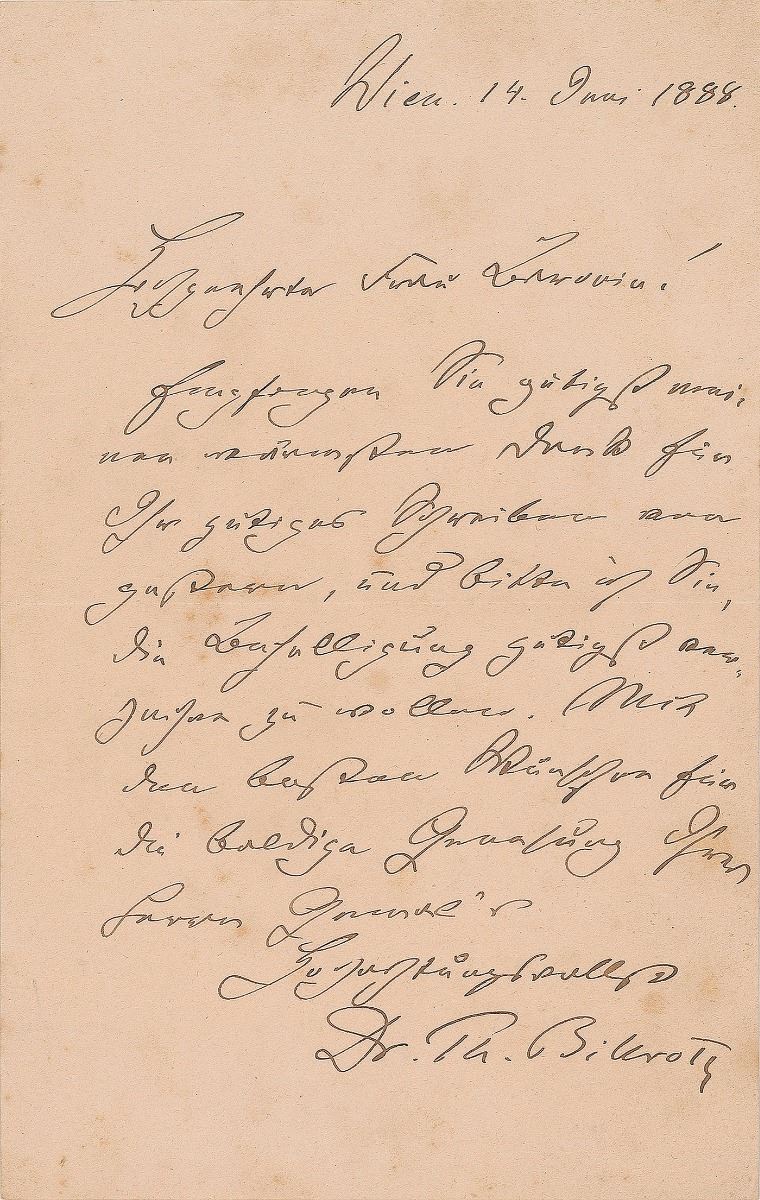 Wien. 14. Juni 1888.
Hochgeehrte Frau Baronin!
Empfangen Sie gütigst mei-
nen wärmsten Dank für
Ihr gütiges Schreiben von
gestern, und bitte ich Sie,
die Behelligung gütigst ver-
zeihen zu wollen. Mit
den besten Wünschen für
die baldige Genesung Ihres
Herrn Gemal's
Hochachtungsvollst
Dr. Th. Billroth